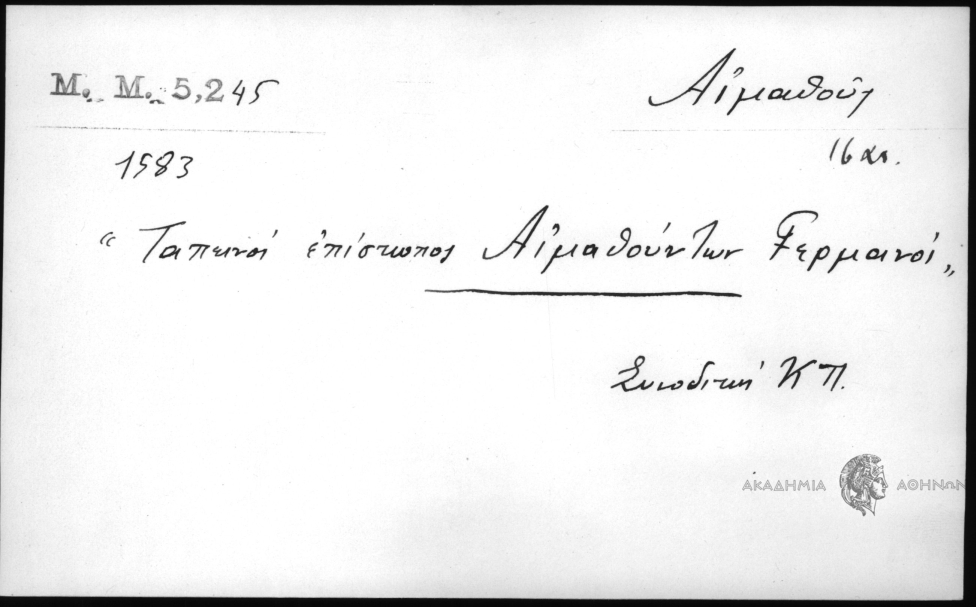 Μ. Μ. 5,245
Αἱμαθοῦς
16 αι.
1583
“ Ταπεινὸς ἐπίσκοπος Αἱμαθούντων Γερμανός „
Συνοδική ΚΠ.
ΑΚΑΔΗΜΙΑ ΑΘΗΝΩΝ